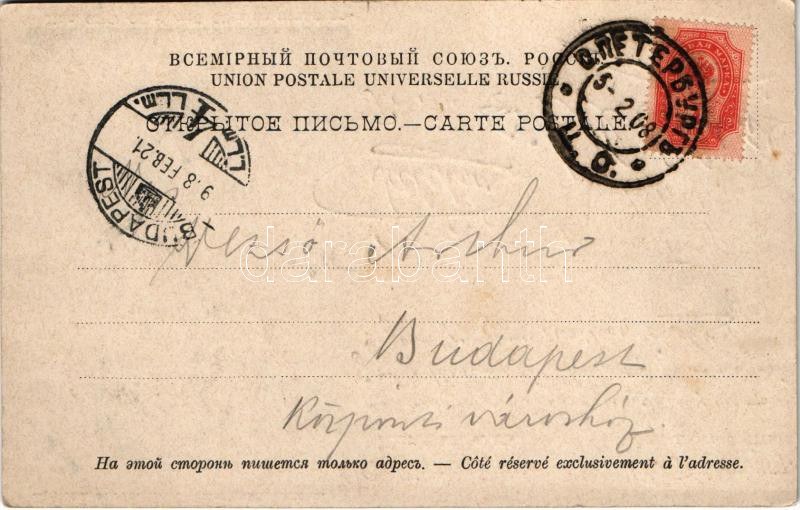 ВСЕМІРНЫЙ ПОЧТОВЫЙ СОЮЗЪ. РОССІЯ
UNION POSTALE UNIVERSELLE RUSSIE
ОТКРЫТОЕ ПИСЬМО.—CARTE POSTALE
С.ПЕТЕРБУРГЪ
5-2.08
BUDAPEST
9.8 FEB.21.
darabanth
Arthur
Budapest
Központi városház
На этой сторонѣ пишется только адресъ. — Côté réservé exclusivement à l'adresse.